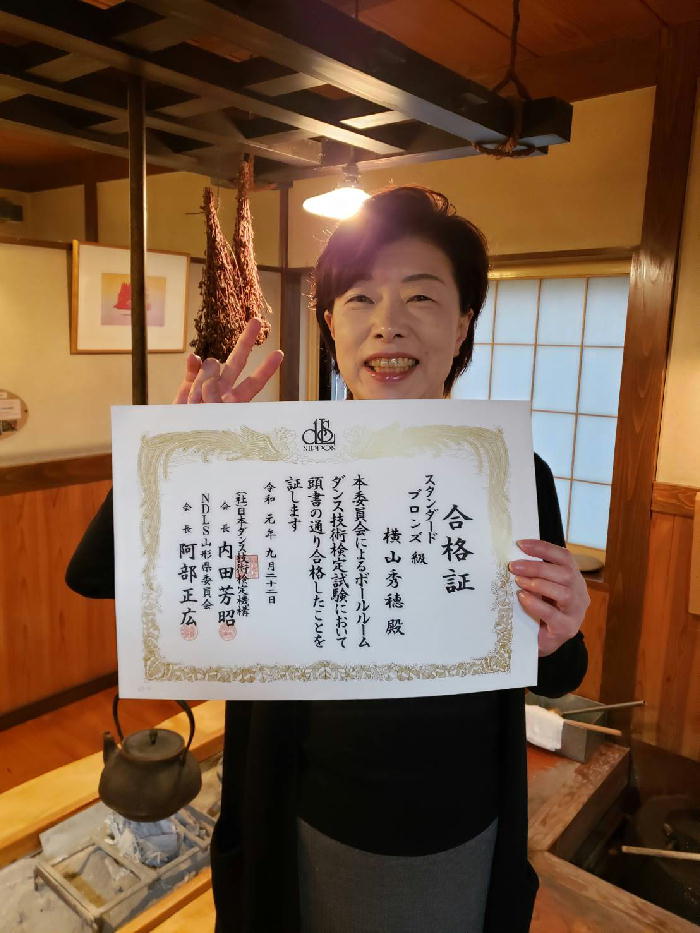 NIPPON
合格証
スタンダード
ブロンズ級
横山秀穂殿
本委員会によるボールルーム
ダンス技術検定試験において
頭書の通り合格したことを
証します
令和元年九月二十二日
(社)日本ダンス技術検定機構
会長 内田芳昭
NDLS山形県委員会
会長 阿部正広